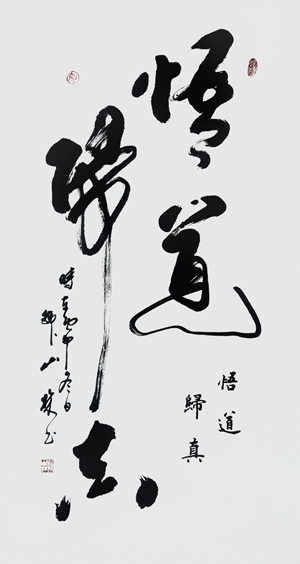 悟道
歸真
悟道
歸真
時
冬日
山